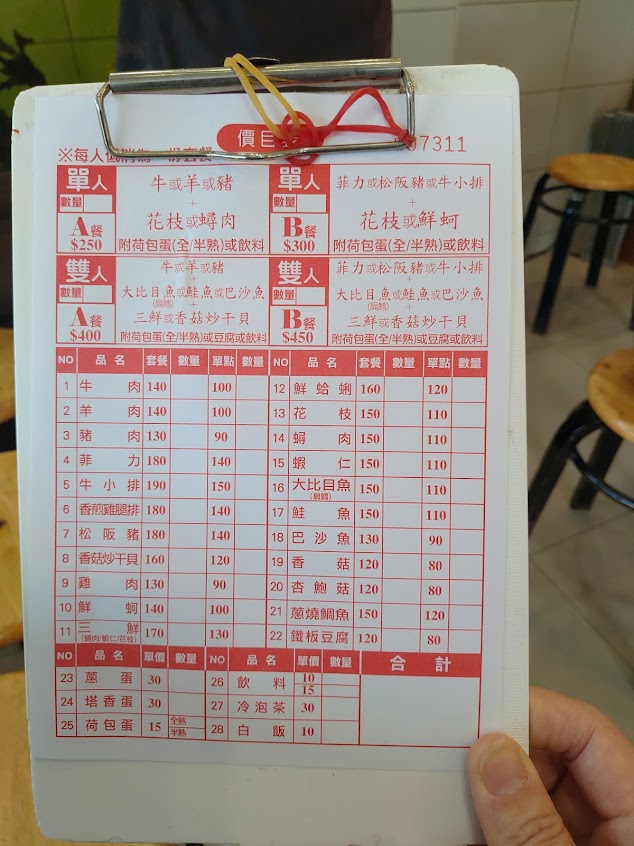 價目
07311
※每人低消為一份套餐
單人
數量
A餐
$250
牛或羊或豬
+
花枝或蟳肉
附荷包蛋(全/半熟)或飲料
單人
數量
B餐
$300
菲力或松阪豬或牛小排
+
花枝或鮮蚵
附荷包蛋(全/半熟)或飲料
雙人
數量
A餐
$400
牛或羊或豬
+
大比目魚或鮭魚或巴沙魚
(扁鱈)
+
三鮮或香菇炒干貝
附荷包蛋(全/半熟)或豆腐或飲料
雙人
數量
B餐
$450
菲力或松阪豬或牛小排
+
大比目魚或鮭魚或巴沙魚
(扁鱈)
+
三鮮或香菇炒干貝
附荷包蛋(全/半熟)或豆腐或飲料
NO 品名 套餐 數量 單點 數量
1 牛肉 140 100
2 羊肉 140 100
3 豬肉 130 90
4 菲力 180 140
5 牛小排 190 150
6 香煎雞腿排 180 140
7 松阪豬 180 140
8 香菇炒干貝 160 120
9 雞肉 130 90
10 鮮蚵 140 100
11 三鮮 170 130
(蟳肉/蝦仁/花枝)
NO 品名 套餐 數量 單點 數量
12 鮮蛤蜊 160 120
13 花枝 150 110
14 蟳肉 150 110
15 蝦仁 150 110
16 大比目魚 150 110
(扁鱈)
17 鮭魚 150 110
18 巴沙魚 130 90
19 香菇 120 80
20 杏鮑菇 120 80
21 蔥燒鯛魚 150 120
22 鐵板豆腐 120 80
NO 品名 單價 數量
23 蔥蛋 30
24 塔香蛋 30
25 荷包蛋 15 全熟
半熟
NO 品名 單價 數量
26 飲料 10
15
27 冷泡茶 30
28 白飯 10
合計